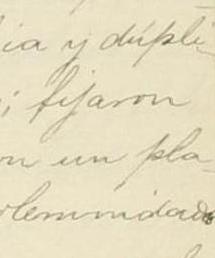 ia y dúpli-
; fijaron
on un pla-
olemnidad